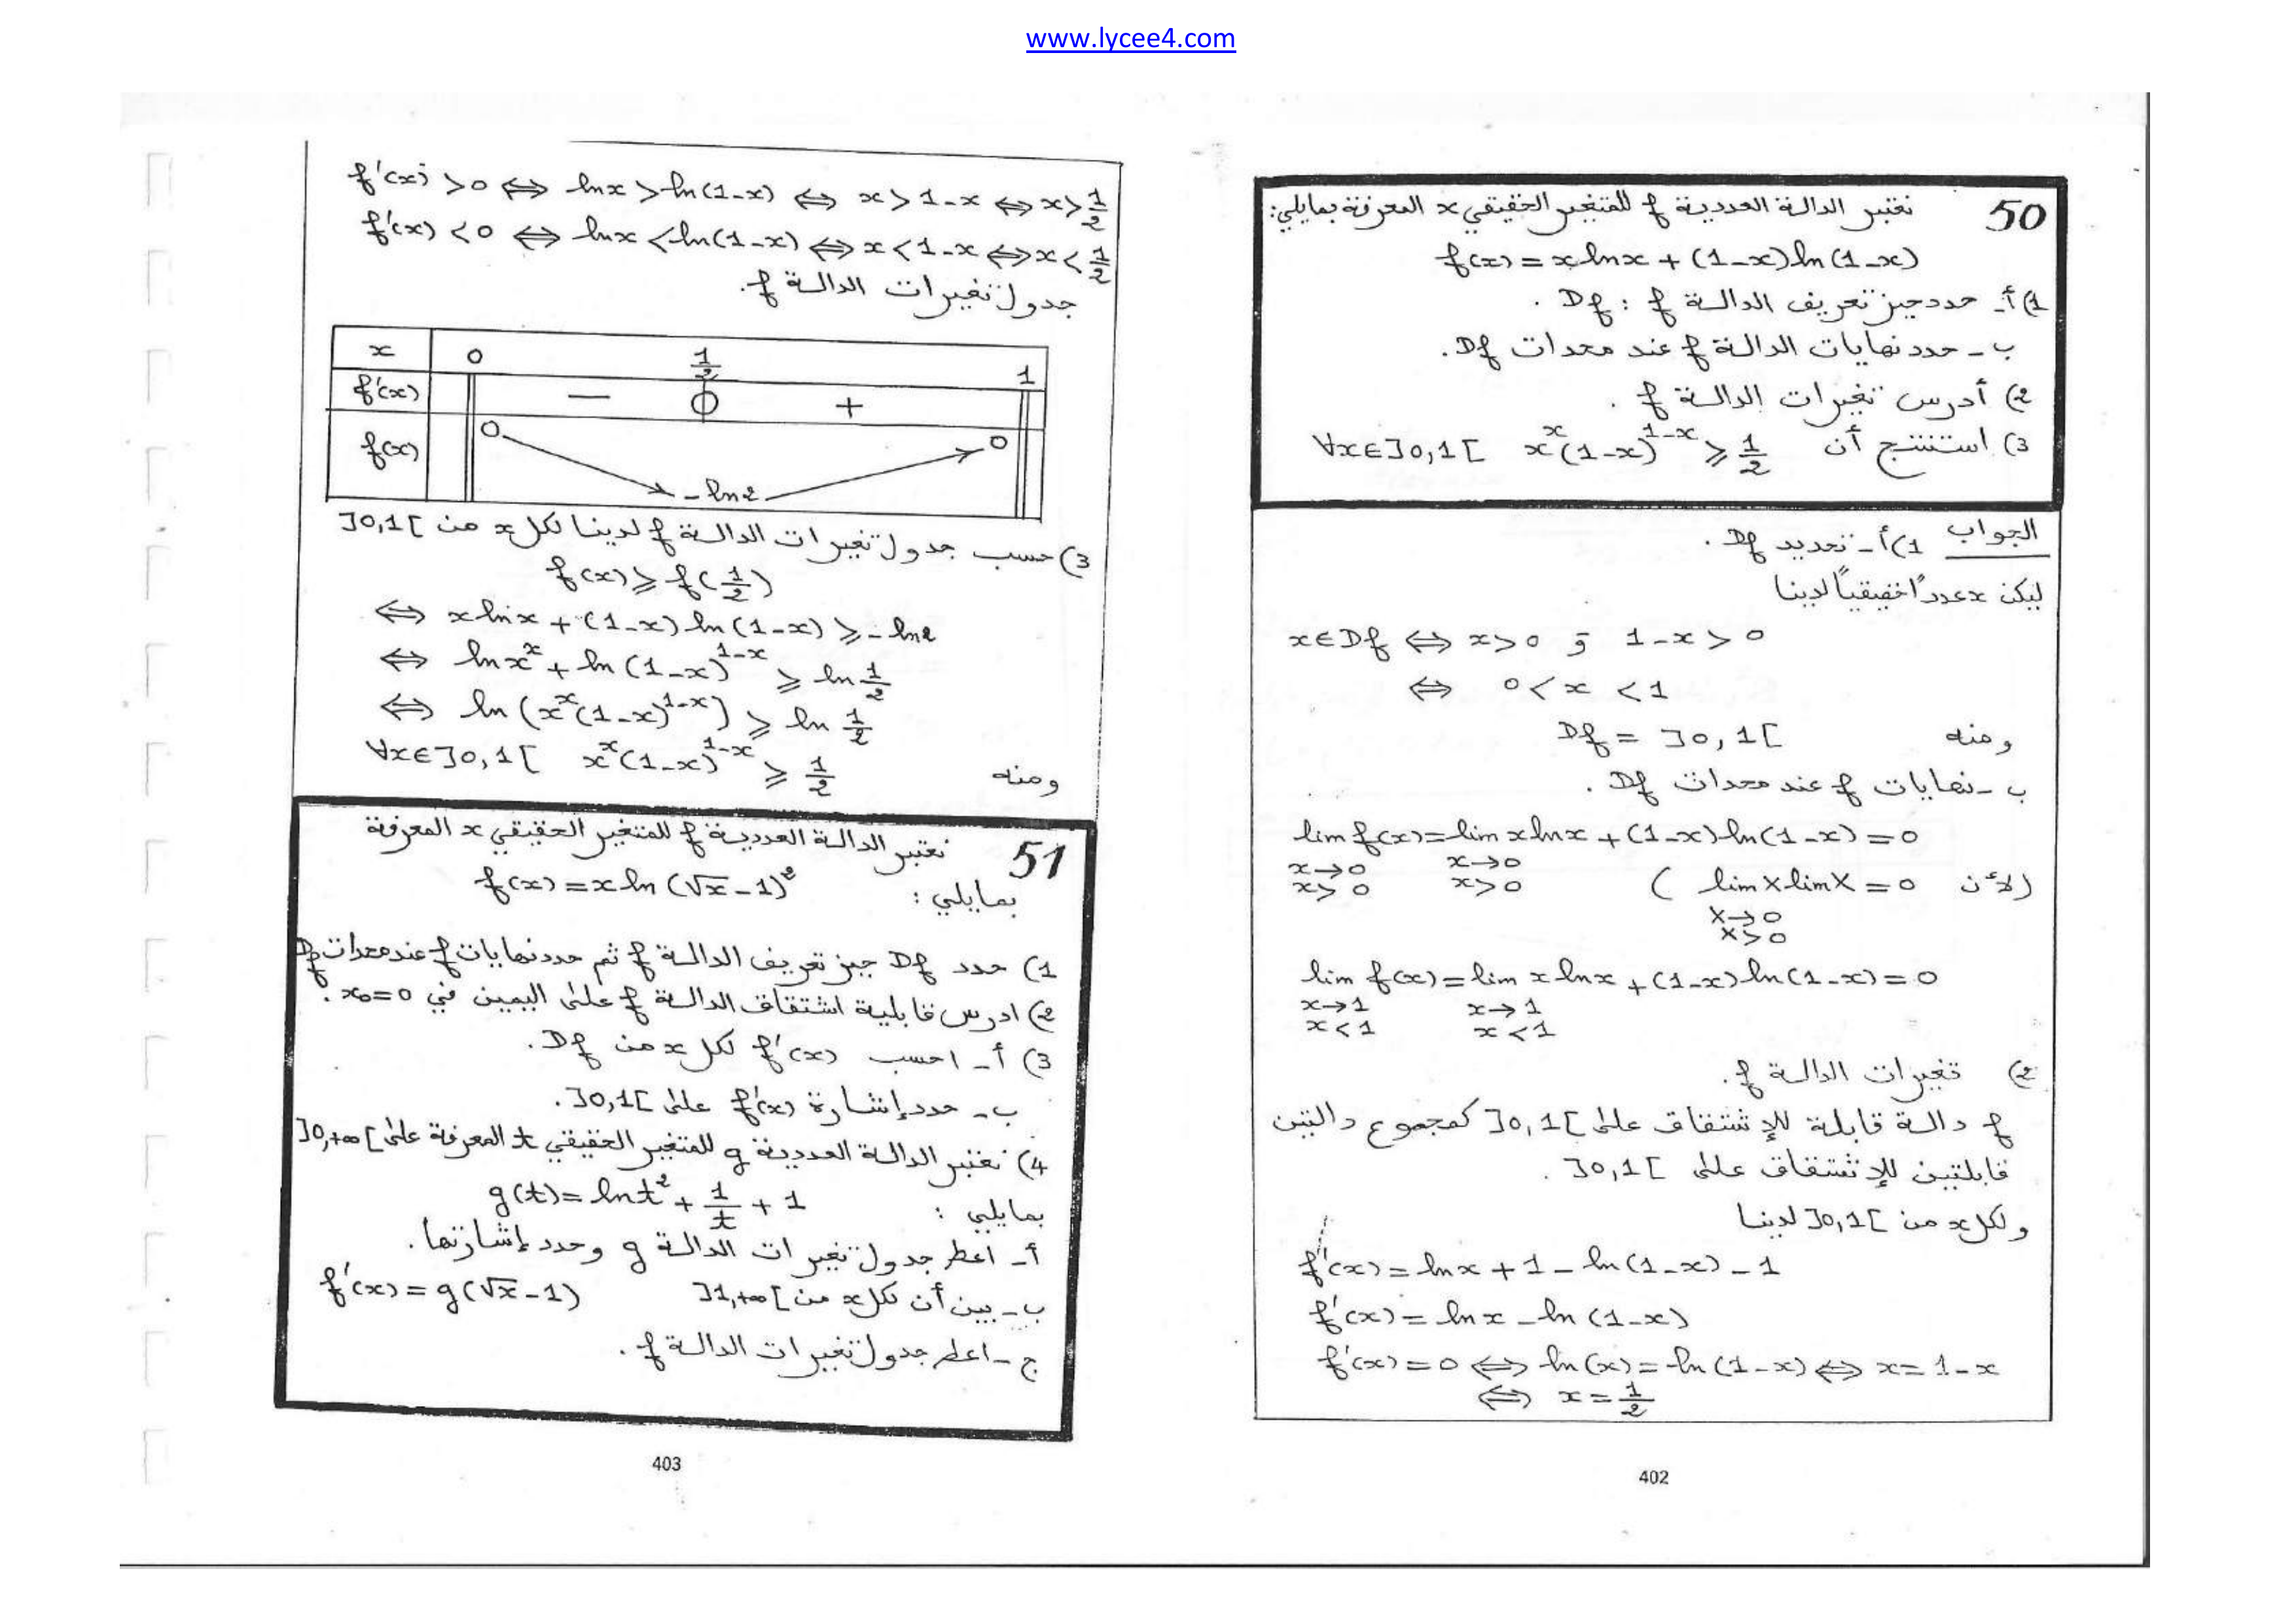 www.lycee4.com
50 نعتبر الدالة العددية f للمتغير الحقيقي x المعرفة بمايلي:
f(x) = x ln x + (1-x) ln(1-x)
1) أ- حدد حيز تعريف الدالة f : Df .
ب - حدد نهايات الدالة f عند محدات Df.
2) أدرس تغيرات الدالة f .
3) استنتج أن ∀x∈]0,1[ x^x(1-x)^{1-x} ⩾ 1/2
الجواب 1) أ - تحديد Df .
ليكن x عدداً حقيقياً لدينا
x∈Df ⇔ x>0 و 1-x > 0
⇔ 0 < x < 1
ومنه Df = ]0,1[
ب - نهايات f عند محدات Df .
lim f(x) = lim x ln x + (1-x) ln(1-x) = 0
x→0 x→0
x>0 x>0
(لأن lim X lim X = 0 )
X→0
X>0
lim f(x) = lim x ln x + (1-x) ln(1-x) = 0
x→1 x→1
x<1 x<1
2) تغيرات الدالة f.
f دالة قابلة للإشتقاق على ]0,1[ كمجموع دالتين
قابلتين للإشتقاق على ]0,1[ .
ولكل x من ]0,1[ لدينا
f'(x) = ln x + 1 - ln(1-x) - 1
f'(x) = ln x - ln(1-x)
f'(x) = 0 ⇔ ln(x) = ln(1-x) ⇔ x = 1-x
⇔ x = 1/2
402
f'(x) > 0 ⇔ ln x > ln(1-x) ⇔ x > 1-x ⇔ x > 1/2
f'(x) < 0 ⇔ ln x < ln(1-x) ⇔ x < 1-x ⇔ x < 1/2
جدول تغيرات الدالة f.
x 0 1/2 1
f'(x) - 0 +
f(x) 0 -ln2 0
3) حسب جدول تغيرات الدالة f لدينا لكل x من ]0,1[
f(x) ⩾ f(1/2)
⇔ x ln x + (1-x) ln(1-x) ⩾ -ln2
⇔ ln x^x + ln(1-x)^{1-x} ⩾ ln 1/2
⇔ ln(x^x(1-x)^{1-x}) ⩾ ln 1/2
ومنه ∀x∈]0,1[ x^x(1-x)^{1-x} ⩾ 1/2
51 نعتبر الدالة العددية f للمتغير الحقيقي x المعرفة
بمايلي : f(x) = x ln(√x - 1)²
1) حدد Df حيز تعريف الدالة f ثم حدد نهايات f عند محدات Df
2) ادرس قابلية اشتقاق الدالة f على اليمين في x₀=0 .
3) أ - احسب f'(x) لكل x من Df.
ب - حدد إشارة f'(x) على ]0,1[.
4) نعتبر الدالة العددية g للمتغير الحقيقي t المعرفة على ]0,+∞[
بمايلي : g(t) = ln t² + 1/t + 1
أ - اعط جدول تغيرات الدالة g وحدد إشارتها.
ب - بين أن لكل x من ]1,+∞[ f'(x) = g(√x - 1)
ج - اعط جدول تغيرات الدالة f .
403